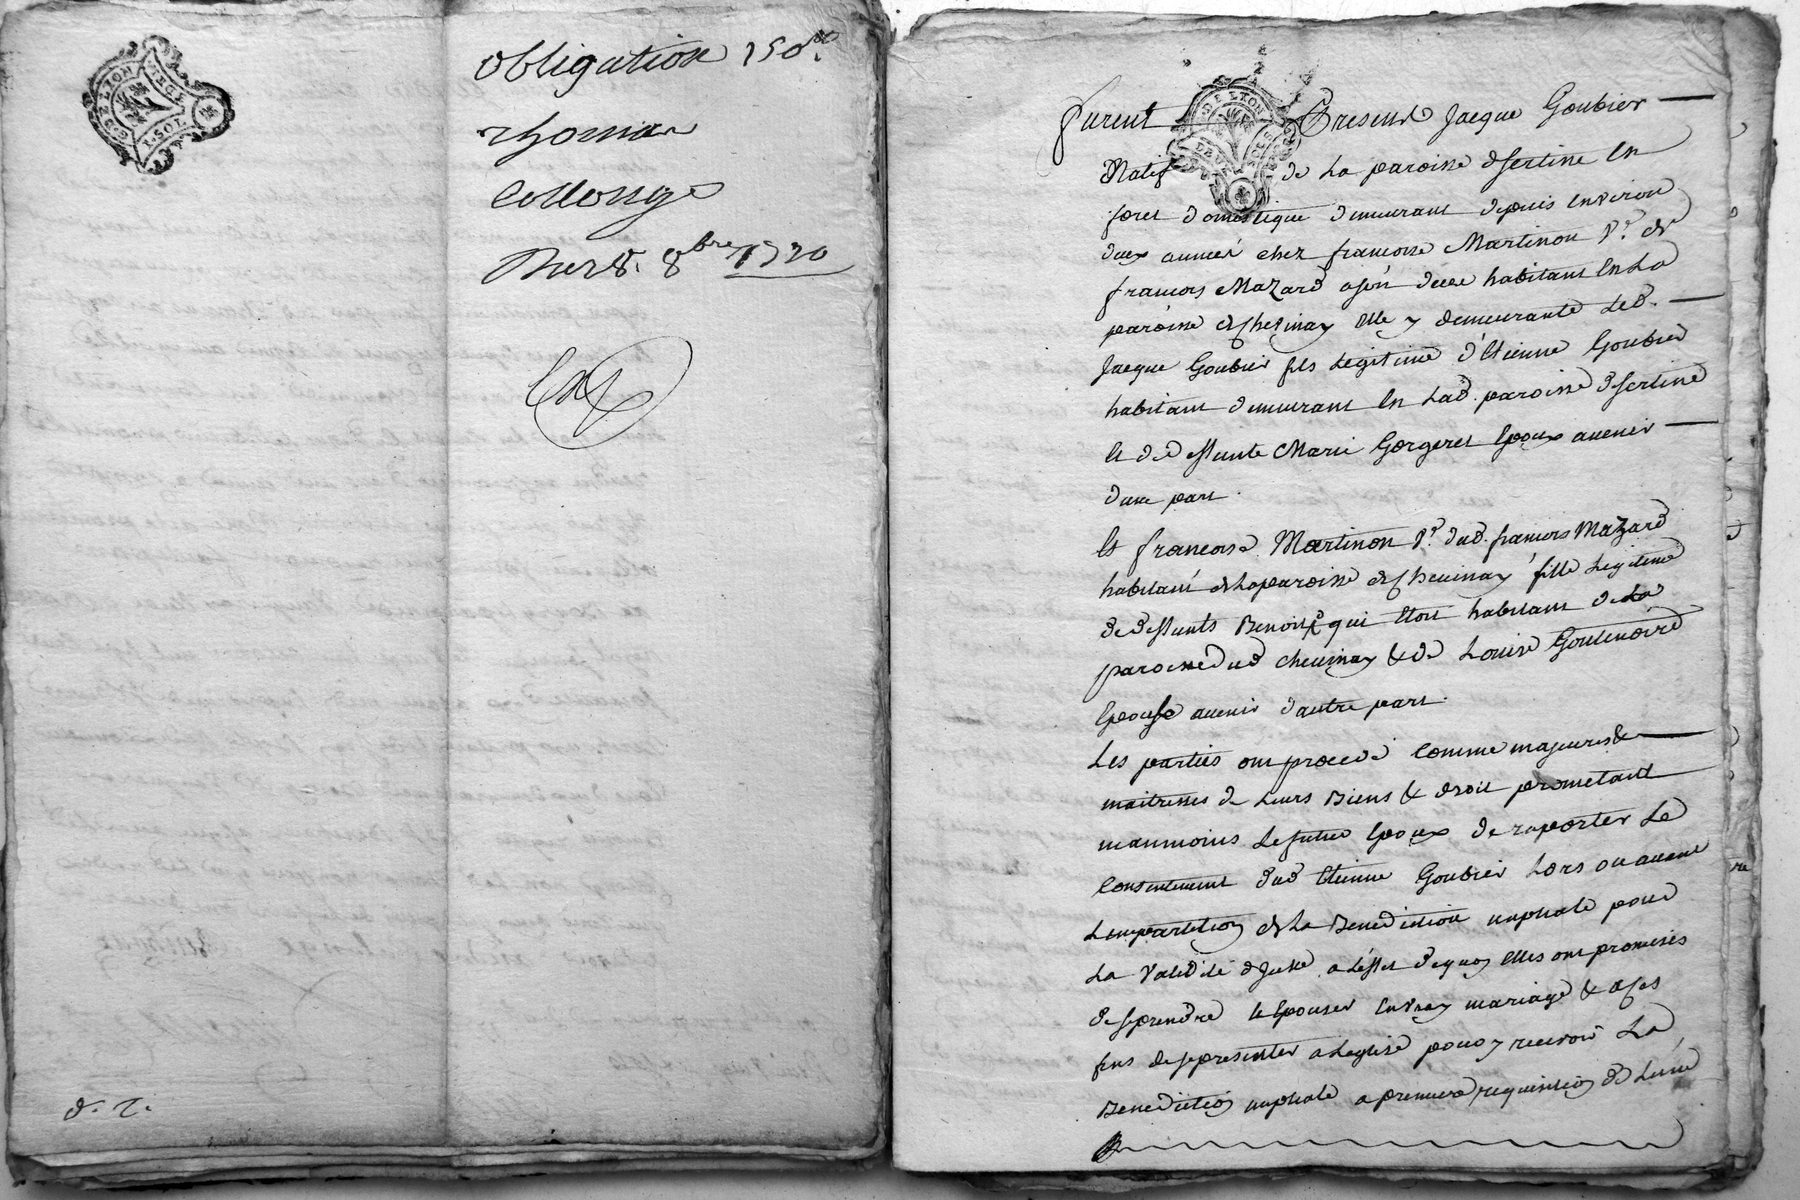 G. DE LYON
1. SOL
Obligation 150ᵗᵗ
thomas
Collonge
Du 8. 8bre 1720
d. t.
G. DE LYON
furent Presents Jacque Goubier
Natif de La paroisse dsertine En
foret domestique demeurant depuis Environ
deux année chez francoise Martinon Vᵉ. de
francois Mazard habitant En La
paroisse de chevinay Elle y demeurante Led.
Jacque Goubier fils Legitime d'Etienne Goubier
habitant demeurant En Lad. paroisse dsertine
Et de deffunte Marie Gorgeret Epoux avenir
dune part.
Et francoise Martinon Vᵉ. dud. francois Mazard
habitant de Laparoisse de chevinay fille Legitime
de deffunts Benoist qui Etoit habitant de La
paroisse dud chevinay & de Louise Goutenoire
Epouse avenir dautre part.
Les parties ont procedé Comme majeures &
maitresses de Leurs Biens & droit prometant
neanmoins Lefutur Epoux de raporter Le
Consentement dud Etienne Goubier Lors ou avant
Limpartition de La Benediction nuptiale pour
La Validité dicelle, a Leffet dequoy Elles ont promises
de seprendre & Epouser En Vray mariage & a ses
fins de sepresenter a Leglise pour y recevoir La
Benediction nuptiale a premiere requisition de Lune